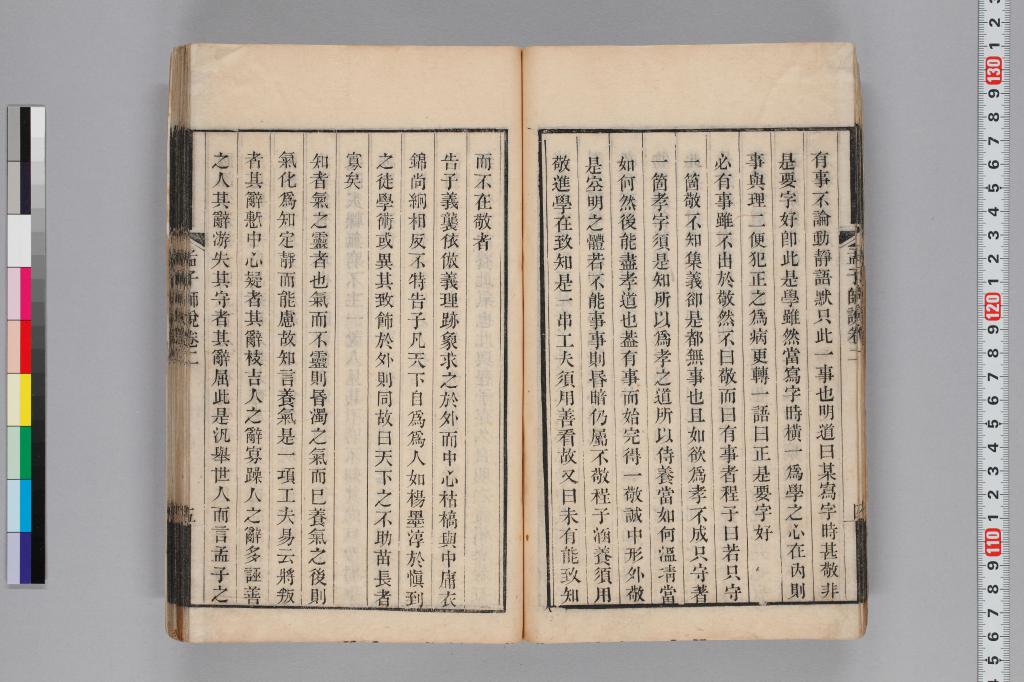 有事不論動靜語默只此一事也明道曰某寫字時甚敬非
是要字好卽此是學雖然當寫字時橫一爲學之心在內則
事與理二便犯正之爲病更轉一語曰正是要字好
必有事雖不出於敬然不曰敬而曰有事者程子曰若只守
一箇敬不知集義卻是都無事也且如欲爲孝不成只守著
一箇孝字須是知所以爲孝之道所以侍養當如何溫凊當
如何然後能盡孝道也蓋有事而始完得一敬誠中形外敬
是空明之體若不能事事則昏暗仍屬不敬程子涵養須用
敬進學在致知是一串工夫須用善看故又曰未有能致知
孟子師說卷二
而不在敬者
告子義襲依倣義理跡象求之於外而中心枯槁與中庸衣
錦尚絅相反不特告子凡天下自爲爲人如楊墨淳於愼到
之徒學術或異其致飾於外則同故曰天下之不助苗長者
寡矣
知者氣之靈者也氣而不靈則昏濁之氣而已養氣之後則
氣化爲知定靜而能慮故知言養氣是一項工夫易云將叛
者其辭慙中心疑者其辭枝吉人之辭寡躁人之辭多誣善
之人其辭游失其守者其辭屈此是汎舉世人而言孟子之
孟子師說卷二
五
130
120
110